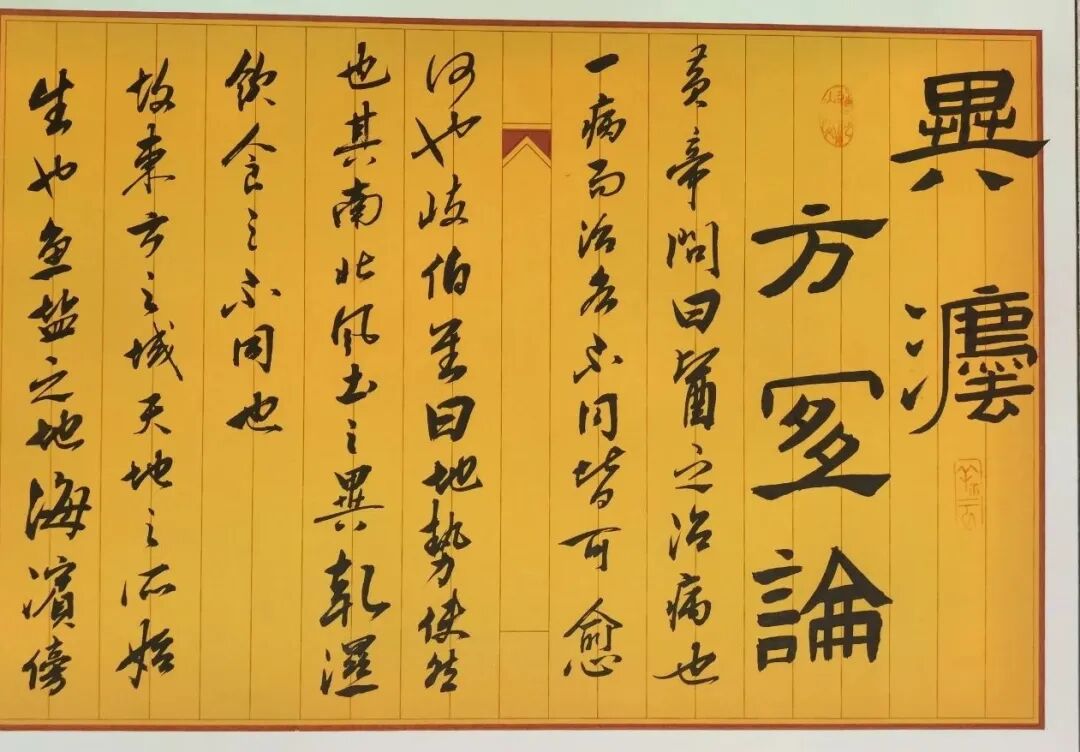 異灋
方宜論
黄帝問曰醫之治病也
一病而治各不同皆可愈
何也岐伯對曰地勢使然
也其南北風土之異乾濕
飲食之不同也
故東方之域天地之所始
生也魚鹽之地海濱傍